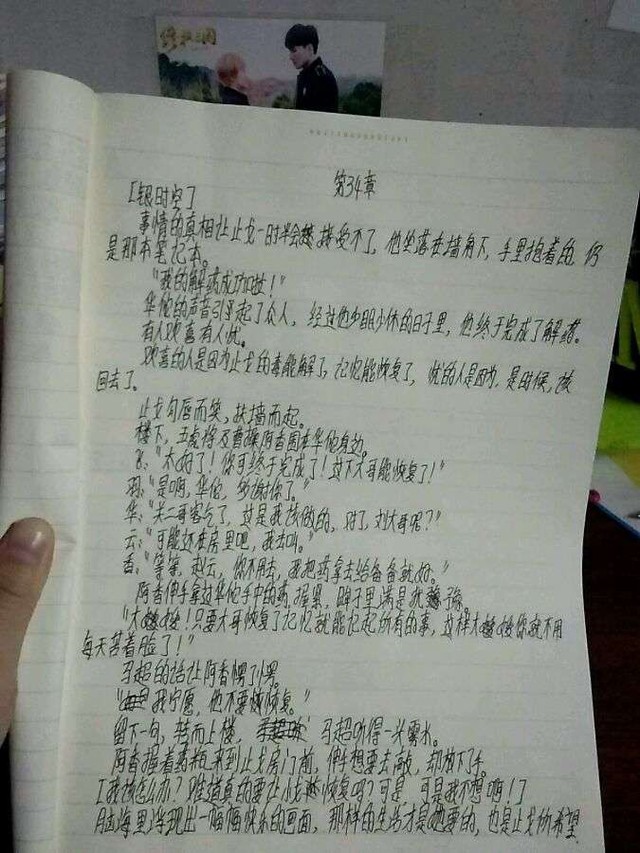 终极三国
第34章
[银时空]
事情的真相让止戈一时半会接受不了，他坐落在墙角下，手里抱着的，仍
是那本笔记本。
“我的解药成功啦！”
华佗的声音引起了众人，经过他少眠少休的日子里，他终于完成了解药。
有人欢喜有人忧。
欢喜的人是因为止戈的毒能解了，记忆能恢复了，忧的人是因为，是时候，该
回去了。
止戈勾唇而笑，扶墙而起。
楼下，五虎将及曹操阿香围在华佗身边。
飞：“太好了！你可终于完成了！这下大哥能恢复了！”
羽：“是啊，华佗，多谢你了。”
华：“关二哥客气了，这是我该做的，对了，刘大哥呢？”
云：“可能还在房里吧，我去叫。”
香：“等等，赵云，你不用去，我把药拿去给备备就好。”
阿香伸手拿过华佗手中的药，握紧，眸子里满是犹豫。
“大嫂！只要大哥恢复了记忆就能记起所有的事，这样大嫂你就不用
每天苦着脸了！”
马超的话让阿香愣了愣。
“我宁愿，他不要恢复。”
留下一句，转而上楼，马超听得一头雾水。
阿香握着药瓶来到止戈房门前，伸手想要去敲，却放下了手。
[我该怎么办？难道真的要让小戈恢复吗？可是，可是我不想啊！]
脑海里浮现出一幅幅快乐的画面，那样的生活才是她要的，也是止戈所希望